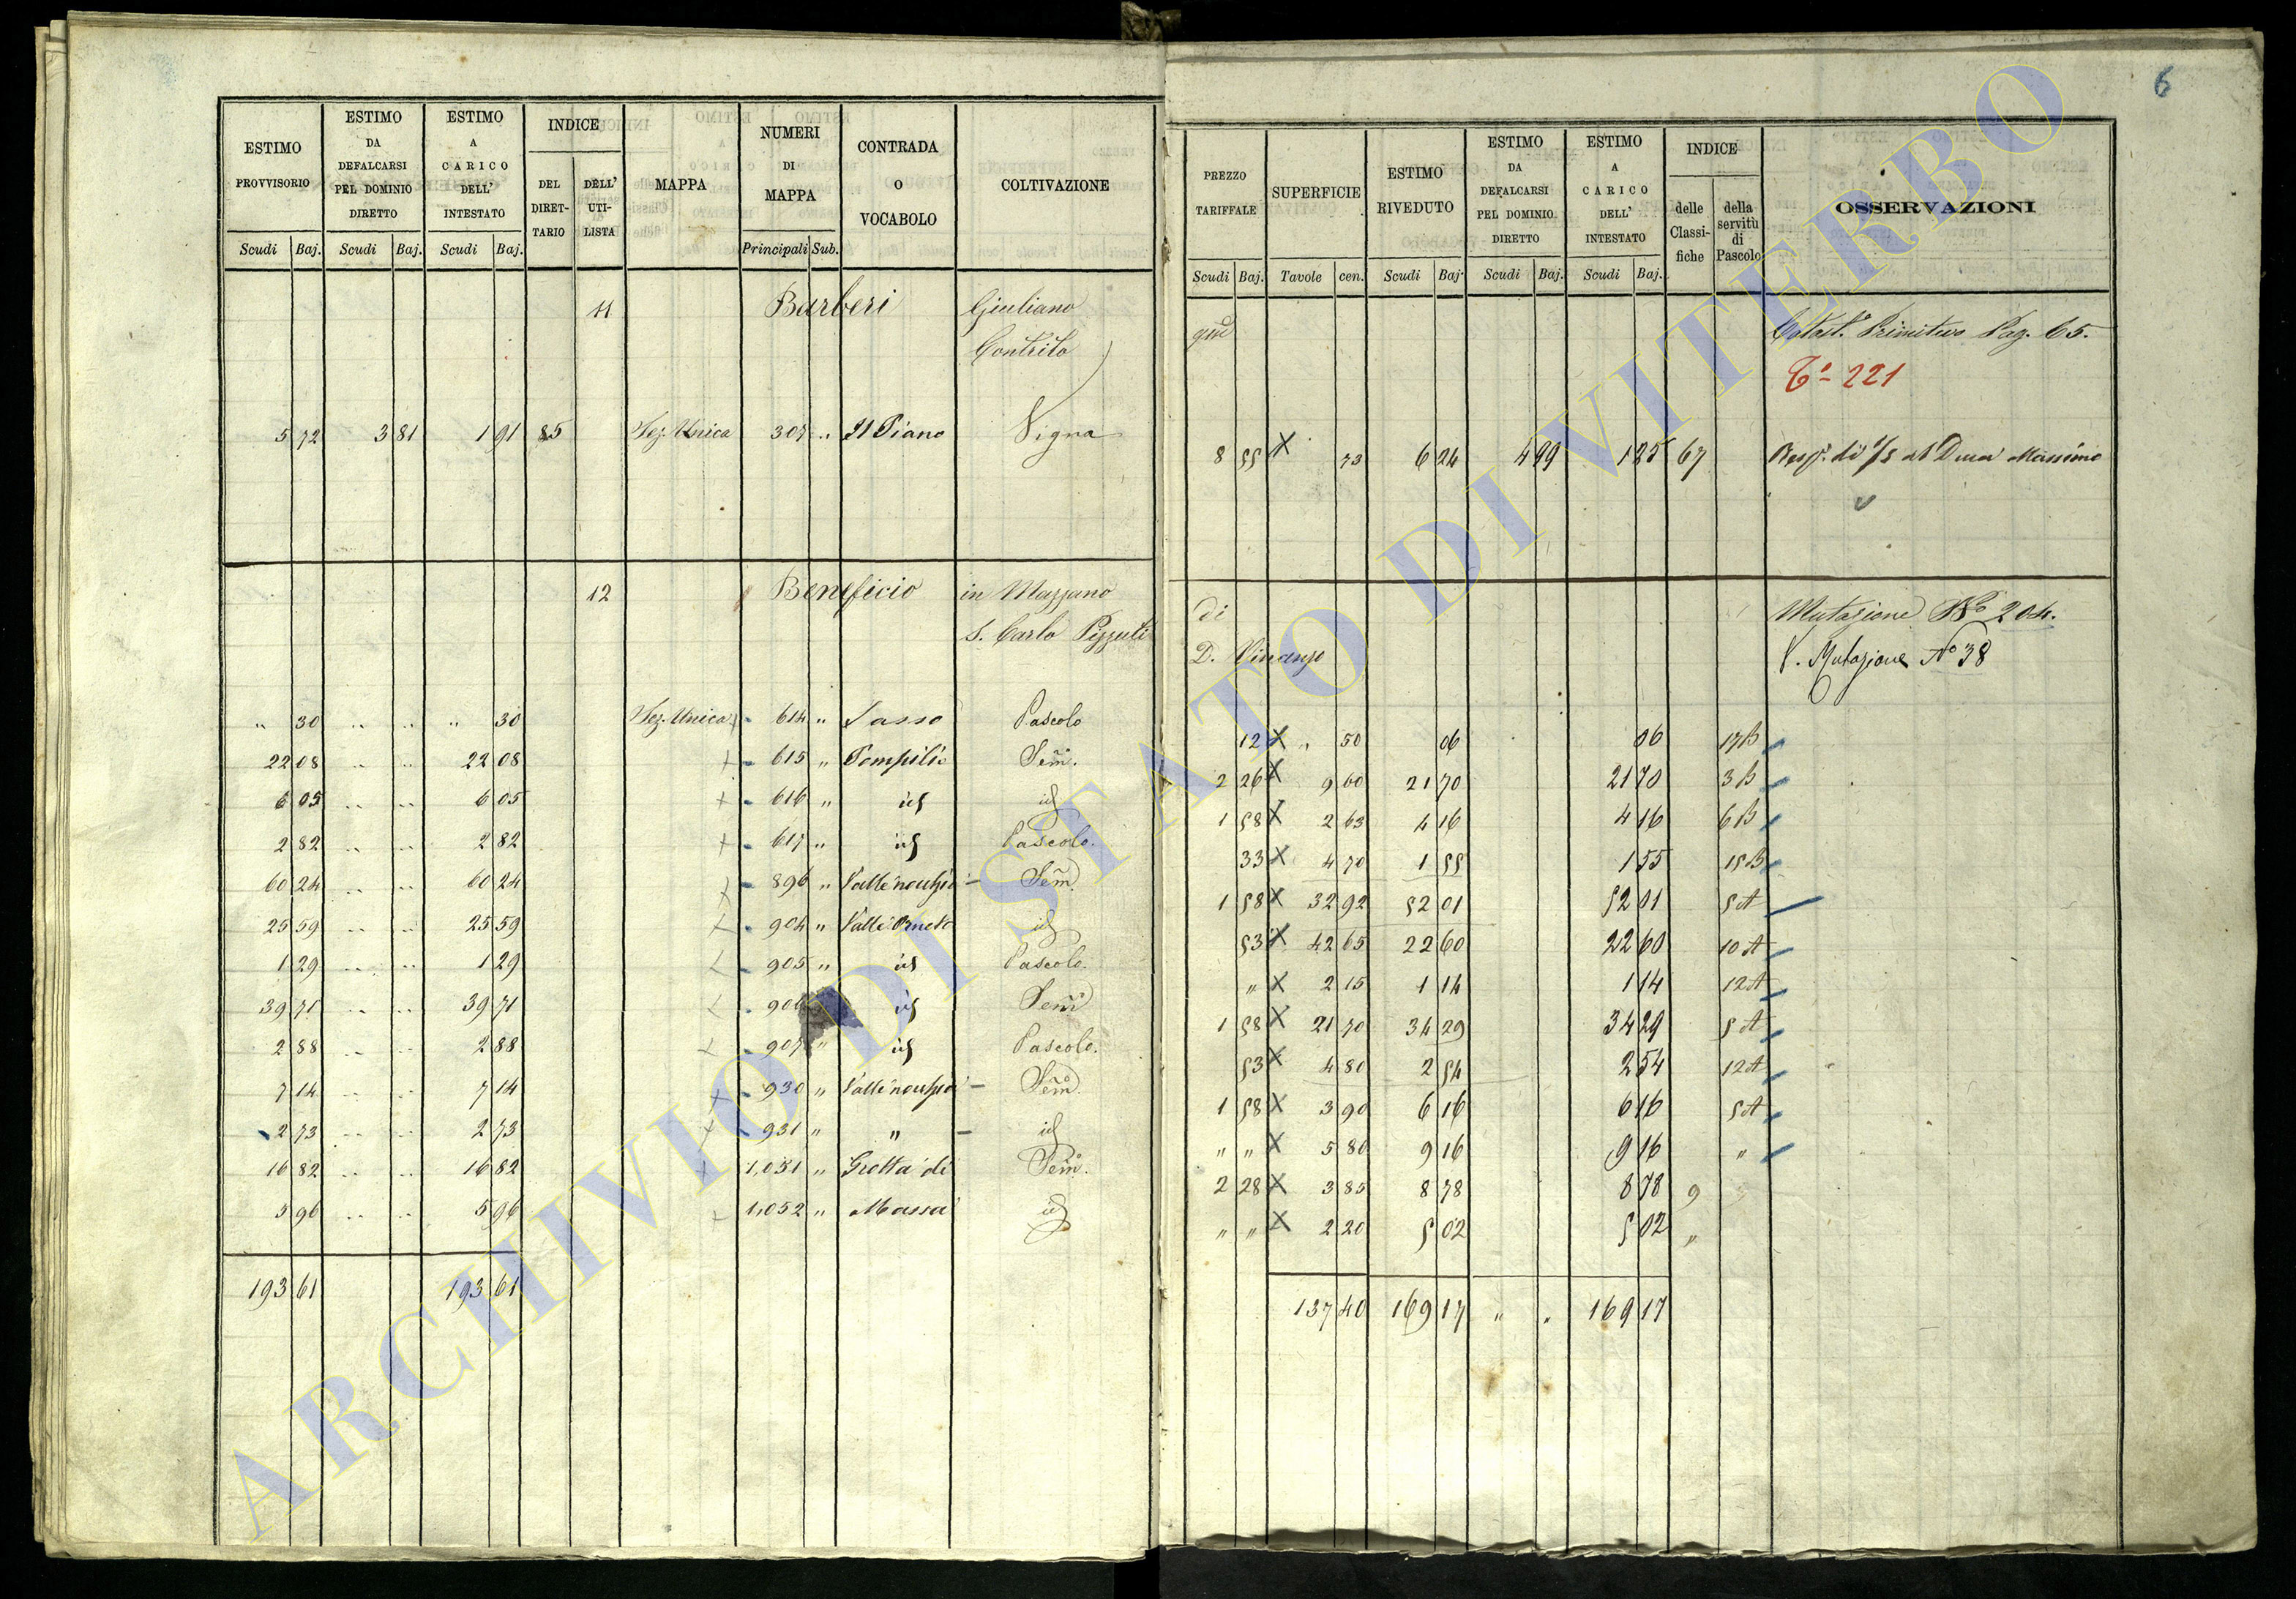 6
ESTIMO PROVVISORIO | ESTIMO DA DEFALCARSI PEL DOMINIO DIRETTO | ESTIMO A CARICO DELL' INTESTATO | INDICE | MAPPA | NUMERI DI MAPPA | CONTRADA O VOCABOLO | COLTIVAZIONE
DEL DIRET-TARIO | DELL' UTI-LISTA
Scudi | Baj. | Scudi | Baj. | Scudi | Baj. | Principali | Sub.
11 Barberi Giuliano
Contrito
5 72 | 3 81 | 1 91 | 85 | Sez. Unica | 307 " | Il Piano | Vigna
12 Beneficio in Mazzano
S. Carlo Pizzuti
" 30 | " " | " 30 | Sez. Unica | 614 " | Sasso | Pascolo
22 08 | " " | 22 08 | 615 " | Pompilio | Sem.
6 05 | " " | 6 05 | 616 " | id | id
2 82 | " " | 2 82 | 617 " | id | Pascolo.
60 24 | " " | 60 24 | 896 " | Sem.
25 59 | " " | 25 59 | 904 " | id
1 29 | " " | 1 29 | 905 " | id | Pascolo.
39 71 | " " | 39 71 | id | Sem
2 88 | " " | 2 88 | 907 " | id | Pascolo.
7 14 | " " | 7 14 | 930 " | Sem.
2 73 | " " | 2 73 | 931 " | " | id
16 82 | " " | 16 82 | 1,051 " | Grotta di | Sem.
5 96 | " " | 5 96 | 1,052 " | Massa | id
193 61 | 193 61
PREZZO TARIFFALE | SUPERFICIE | ESTIMO RIVEDUTO | ESTIMO DA DEFALCARSI PEL DOMINIO DIRETTO | ESTIMO A CARICO DELL' INTESTATO | INDICE | OSSERVAZIONI
delle Classi-fiche | della servitù di Pascolo
Scudi | Baj. | Tavole | cen. | Scudi | Baj. | Scudi | Baj. | Scudi | Baj.
qm Catast.º Primitivo Pag. 65.
221
8 55 X | 73 | 6 24 | 4 99 | 1 25 | 67 | Risp. di 1/5 al Duca Massimo
di Mutazione Nº 204.
D. Vincenzo V. Mutazione Nº 38
12 X | " 50 | 06 | 06 | 17 B
2 26 X | 9 60 | 21 70 | 21 70 | 3 B
1 58 X | 2 63 | 4 16 | 4 16 | 6 B
33 X | 4 70 | 1 55 | 1 55 | 15 B
1 58 X | 32 92 | 52 01 | 52 01 | 5 A
53 X | 42 65 | 22 60 | 22 60 | 10 A
" X | 2 15 | 1 14 | 1 14 | 12 A
1 58 X | 21 70 | 34 29 | 34 29 | 5 A
53 X | 4 80 | 2 54 | 2 54 | 12 A
1 58 X | 3 90 | 6 16 | 6 16 | 5 A
" " X | 5 80 | 9 16 | 9 16 | "
2 28 X | 3 85 | 8 78 | 8 78 | 9
" " X | 2 20 | 5 02 | 5 02 | "
137 40 | 169 17 | " " | 169 17
ARCHIVIO DI STATO DI VITERBO